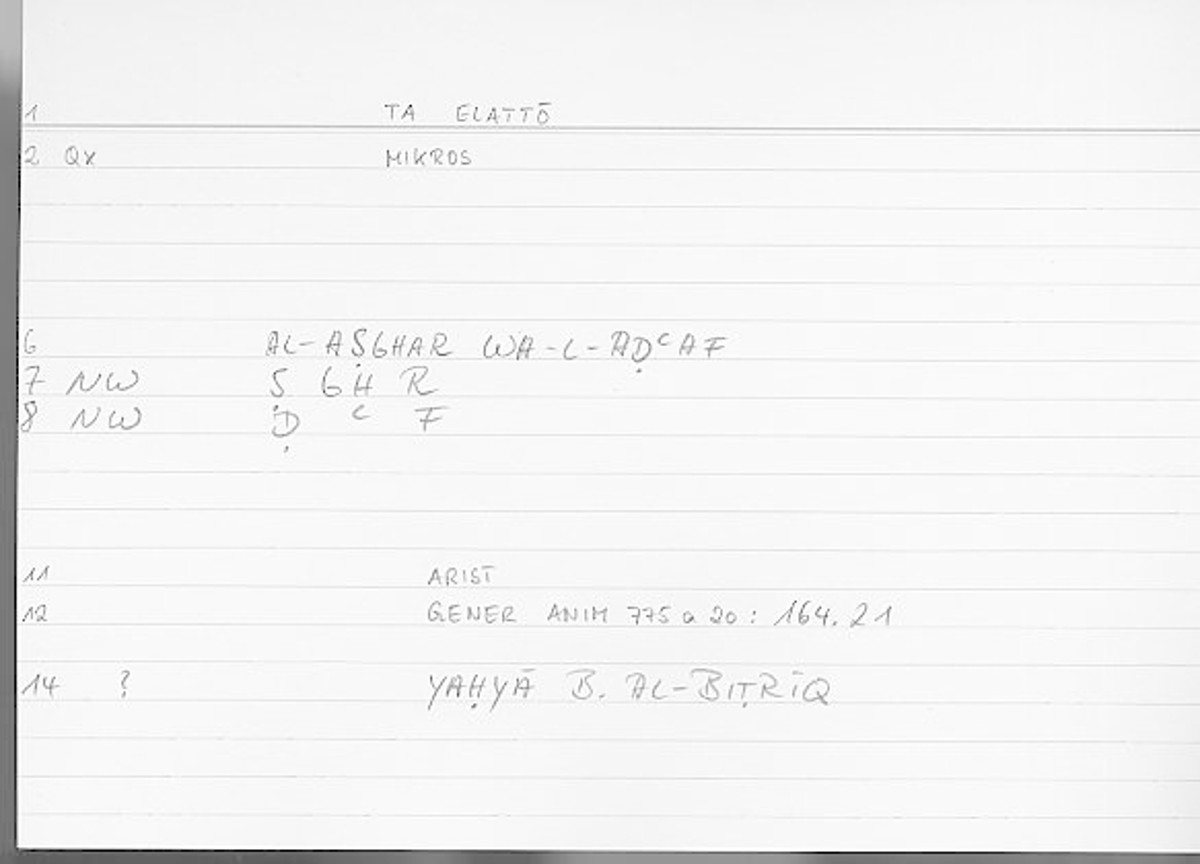 1 TA ELATTŌ
2 Qx MIKROS
6 AL-AṢGHAR WA-L-AḌᶜAF
7 NW Ṣ GH R
8 NW Ḍ ᶜ F
11 ARIST
12 GENER ANIM 775 a 20 : 164.21
14 ? YAḤYĀ B. AL-BIṬRĪQ